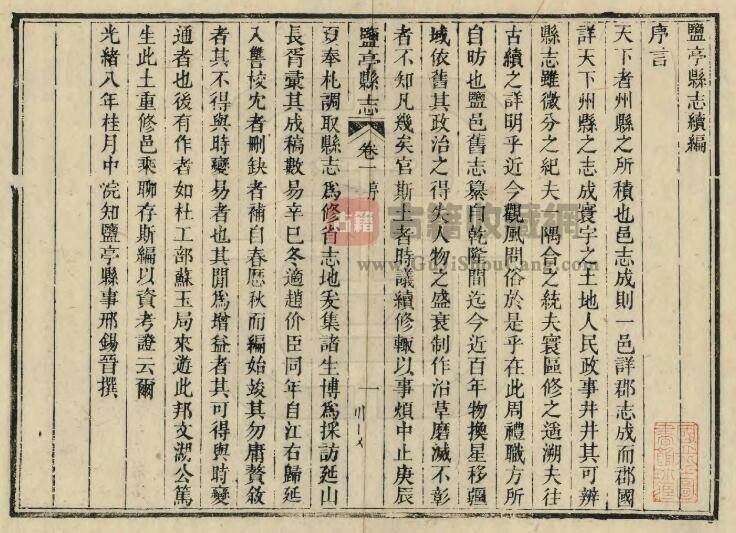 鹽亭縣志續編
序言
天下者州縣之所積也邑志成則一邑詳郡志成而郡國
詳天下州縣之志成寰宇之土地人民政事井井其可辨
縣志雖微分之紀夫一隅合之統夫寰區修之適溯夫往
古續之詳明乎近今觀風問俗於是乎在此周禮職方所
自昉也鹽邑舊志纂自乾隆間迄今近百年物換星移疆
域依舊其政治之得失人物之盛衰制作沿草磨滅不彰
者不知凡幾矣官斯土者時議續修輒以事煩中止庚辰
鹽亭縣志 卷一 序 一
夏奉札調取縣志為修省志地爰集諸生博為採訪延山
長胥彚其成稿數易辛巳冬適趙价臣同年自江右歸延
入讐校冗者刪缺者補自春歷秋而編始竣其勿庸贅敘
者其不得與時變易者也其閒為增益者其可得與時變
通者也後有作者如杜工部蘇玉局來遊此邦文湖公篤
生此土重修邑乘聊存斯編以資考證云爾
光緒八年桂月中浣知鹽亭縣事邢錫晉撰
古籍
古籍收藏網
www.GuJiShouCang.com